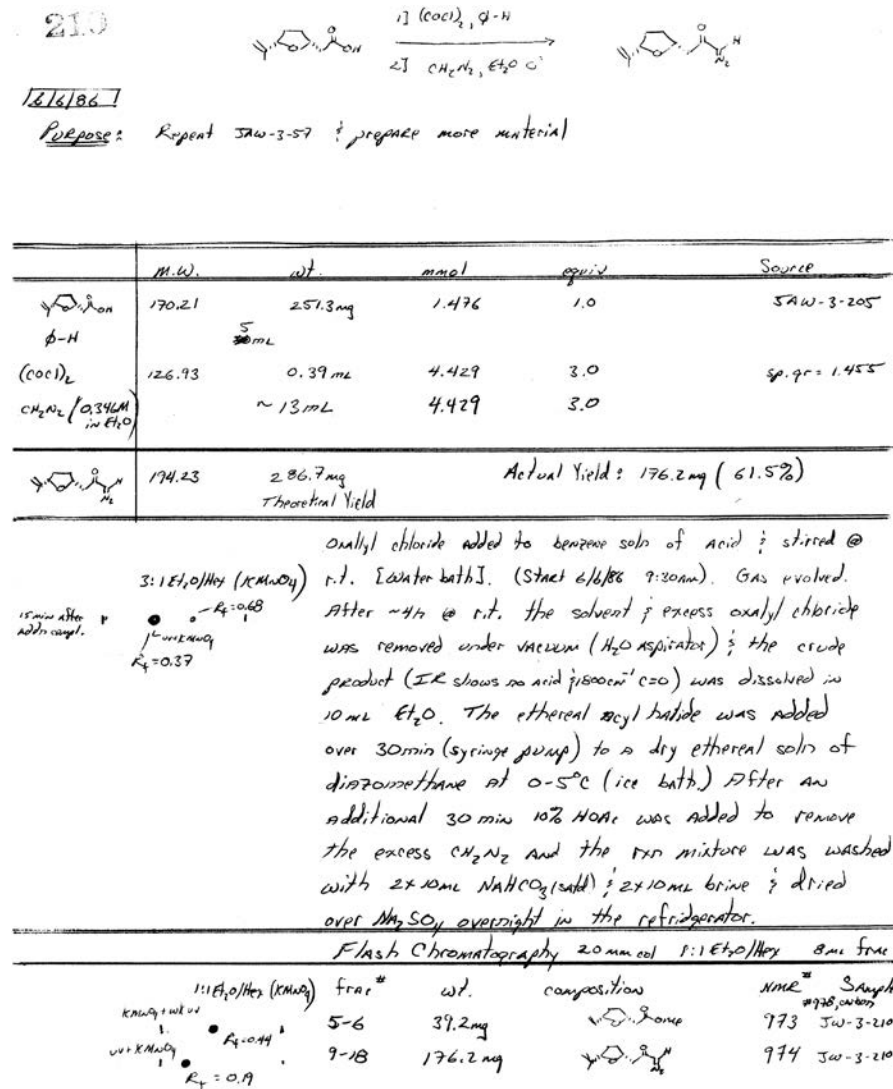 210
1] (COCl)2, Φ-H
2] CH2N2, Et2O 0°
6/6/86
Purpose: Repeat JAW-3-57 & prepare more material
M.W. wt. mmol equiv Source
170.21 251.3mg 1.476 1.0 JAW-3-205
Φ-H 5 mL
(COCl)2 126.93 0.39 mL 4.429 3.0 sp.gr = 1.455
CH2N2 (0.346M in Et2O) ~13mL 4.429 3.0
194.23 286.7mg Actual Yield: 176.2mg (61.5%)
Theoretical Yield
Oxallyl chloride added to benzene soln of acid & stirred @
r.t. [water bath]. (Start 6/6/86 9:30am). Gas evolved.
After ~4h @ r.t. the solvent & excess oxalyl chloride
was removed under vacuum (H2O aspirator) & the crude
product (IR shows no acid & 1800cm-1 C=O) was dissolved in
10mL Et2O. The ethereal acyl halide was added
over 30min (syringe pump) to a dry ethereal soln of
diazomethane at 0-5°C (ice bath.) After an
additional 30 min 10% HOAc was added to remove
the excess CH2N2 and the rxn mixture was washed
with 2x10mL NaHCO3(satd) & 2x10mL brine & dried
over Na2SO4 overnight in the refridgerator.
3:1 Et2O/Hex (KMnO4)
15 min after
addn compl.
Rf=0.68
uv+KMnO4
Rf=0.37
Flash Chromatography 20mm col 1:1 Et2O/Hex 8mL frac
1:1 Et2O/Hex (KMnO4) frac # wt. composition NMR # Sample
#978, carbon
KMnO4 + wk uv Rf=0.44 5-6 39.2mg OMe 973 JW-3-210
uv+KMnO4 Rf=0.19 9-18 176.2mg N2 974 JW-3-210